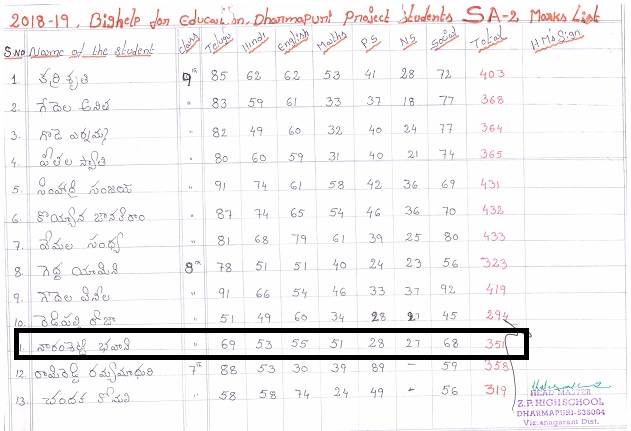 2018-19, Bighelp for Education, Dharmapuri Project Students SA-2, Marks List
S.NO Name of the Student class Telugu Hindi English Maths P.S N.S Social Total HM's Sign
1. కర్రి కృతి 9th 85 62 62 53 41 28 72 403
2. గేదెల అనిత " 83 59 61 33 37 18 77 368
3. గాడె 82 49 60 32 40 24 77 364
4. పీతల స్వాతి " 80 60 59 31 40 21 74 365
5. సింహాద్రి సంజయ " 91 74 61 58 42 36 69 431
6. కొయ్యాన జానకిరాం " 87 74 65 54 46 36 70 432
7. వేమల సంధ్య " 81 68 79 61 39 25 80 433
8. గెద్ద యామిని 8th 78 51 51 40 24 23 56 323
9. గొదెల వినీల " 91 66 54 46 33 37 92 419
10. రెడ్డిపల్లి రోజా " 51 49 60 34 28 27 45 294
11. నారంశెట్టి భవాని " 69 53 55 51 28 27 68 351
12. రామిరెడ్డి రమ్యమాధురి 7th 88 53 30 39 89 - 59 358
13. చందక కోమలి " 58 58 74 24 49 - 56 319
HEAD MASTER
Z.P.HIGH SCHOOL
DHARMAPURI-535004
Vizianagaram Dist.